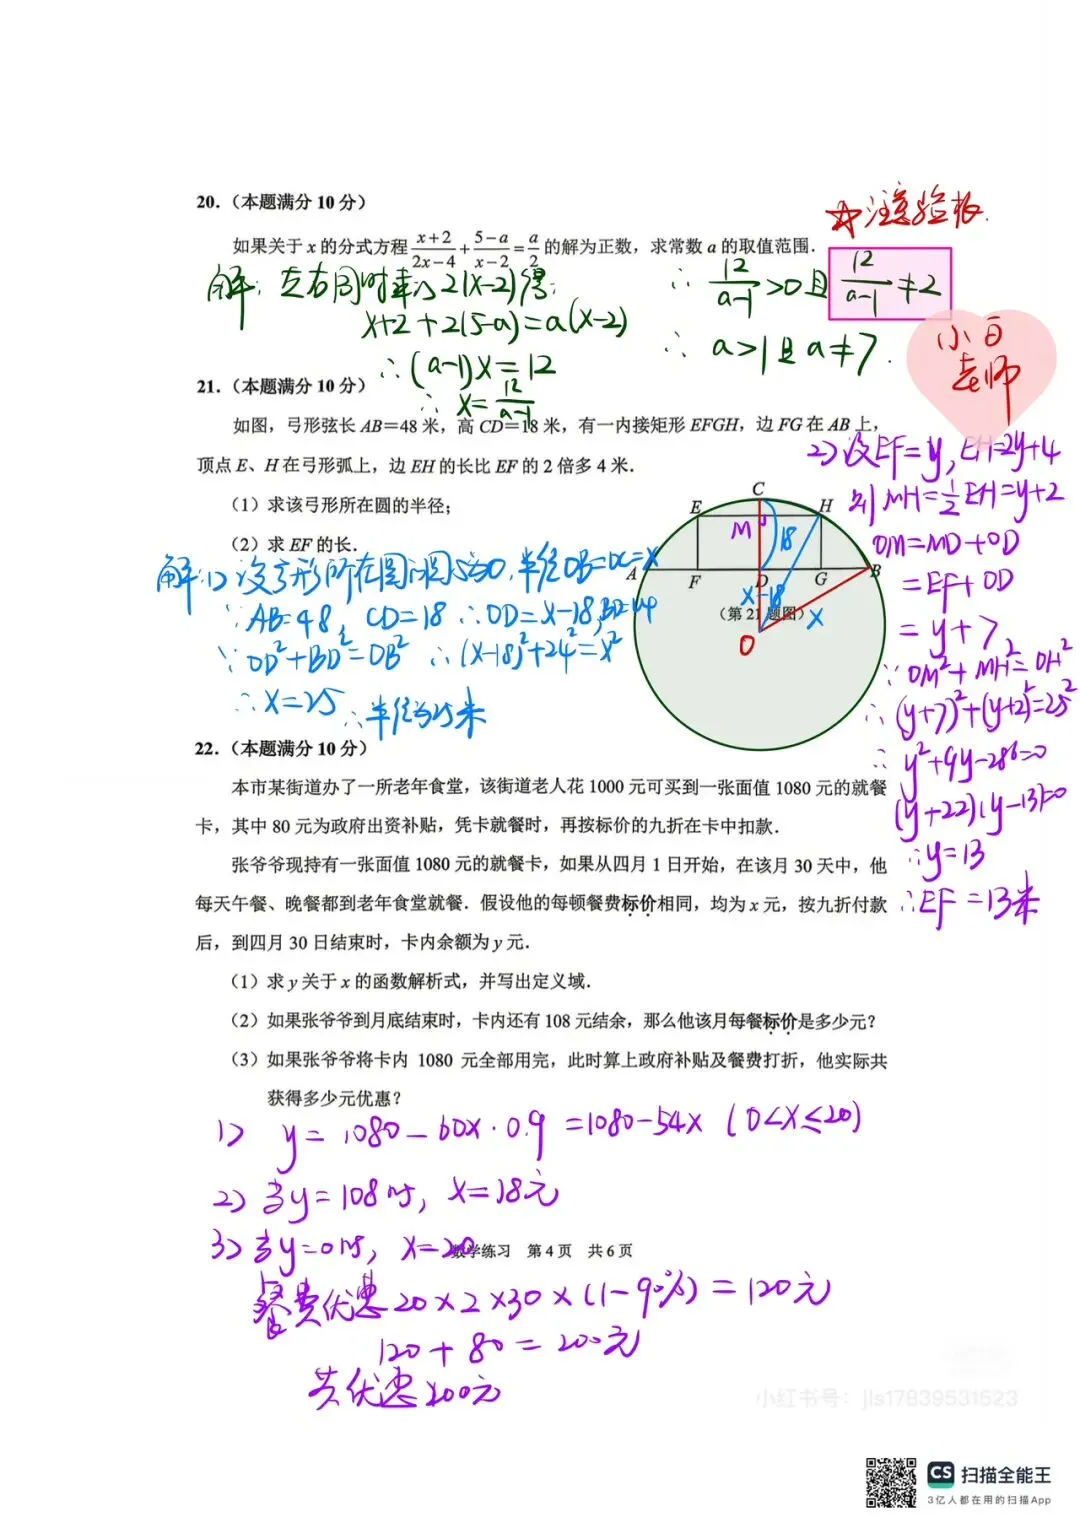 20.（本题满分 10 分）
☆注意验根.
如果关于 x 的分式方程 (x+2)/(2x−4) + (5−a)/(x−2) = a/2 的解为正数，求常数 a 的取值范围.
解: 左右同时乘以2(x-2)得:
x+2+2(5-a)=a(x-2)
∴(a-1)x=12
∴ x=12/(a-1)
∴ 12/(a-1)>0且 12/(a-1)≠2
∴ a>1且a≠7.
小日
老师
21.（本题满分 10 分）
如图，弓形弦长 AB=48 米，高 CD=18 米，有一内接矩形 EFGH，边 FG 在 AB 上，
顶点 E、H 在弓形弧上，边 EH 的长比 EF 的 2 倍多 4 米.
（1）求该弓形所在圆的半径；
（2）求 EF 的长.
解:1) 设弓形所在圆的圆心为O,半径OB=OC=x
∵AB=48, CD=18 ∴OD=x-18, BD=24
∵OD²+BD²=OB² ∴(x-18)²+24²=x²
∴x=25 ∴半径为25米
C
E
M
H
18
A
F
D
G
B
x-18
（第 21 题图）
x
O
2) 设EF=y, EH=2y+4
则MH=½EH=y+2
OM=MD+OD
=EF+OD
=y+7
∵OM²+MH²=OH²
∴(y+7)²+(y+2)²=25²
∴y²+9y-286=0
(y+22)(y-13)=0
∴y=13
∴EF=13米
22.（本题满分 10 分）
本市某街道办了一所老年食堂，该街道老人花 1000 元可买到一张面值 1080 元的就餐
卡，其中 80 元为政府出资补贴，凭卡就餐时，再按标价的九折在卡中扣款.
张爷爷现持有一张面值 1080 元的就餐卡，如果从四月 1 日开始，在该月 30 天中，他
每天午餐、晚餐都到老年食堂就餐．假设他的每顿餐费标价相同，均为 x 元，按九折付款
后，到四月 30 日结束时，卡内余额为 y 元.
（1）求 y 关于 x 的函数解析式，并写出定义域.
（2）如果张爷爷到月底结束时，卡内还有 108 元结余，那么他该月每餐标价是多少元？
（3）如果张爷爷将卡内 1080 元全部用完，此时算上政府补贴及餐费打折，他实际共
获得多少元优惠？
1) y=1080-60x·0.9=1080-54x (0<x≤20)
2) 当y=108时, x=18元
3) 当y=0时, x=20
数学练习 第 4 页 共 6 页
餐费优惠20×2×30×(1-90%)=120元
120+80=200元
共优惠200元
小红书号：jls17839531523
CS 扫描全能王
3亿人都在用的扫描App